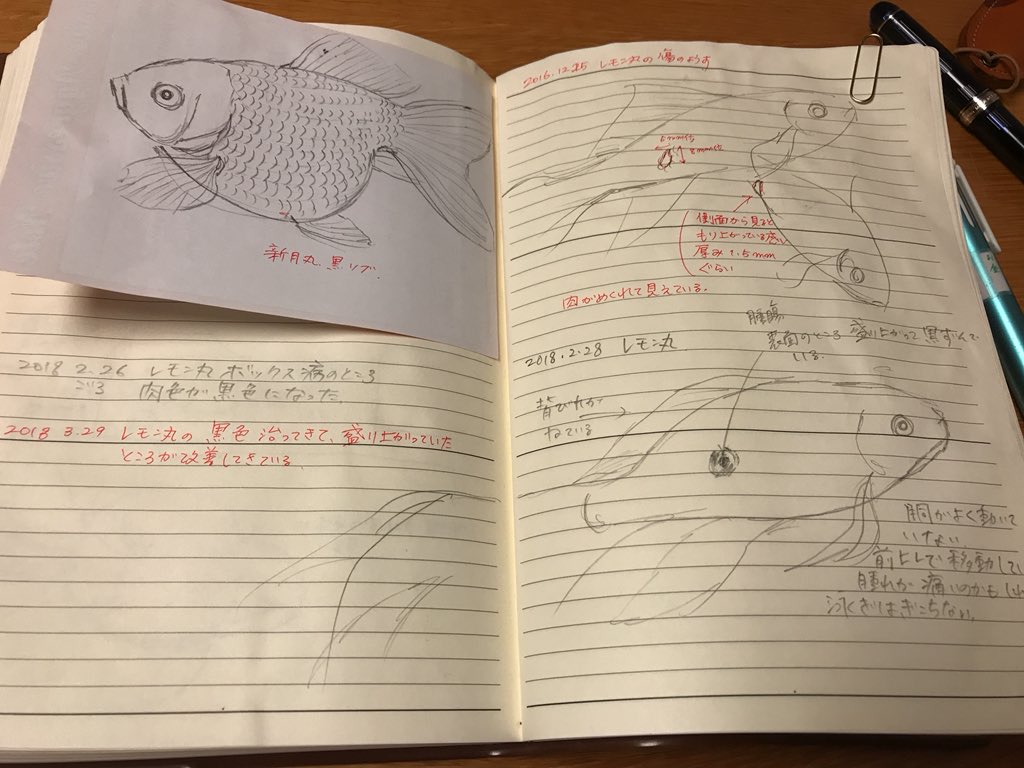 新月丸 黒リブ.
2018 2.26 レモン丸 ポックス病のところ
肉色が黒色になった.
2018 3.29 レモン丸の 黒色 治ってきて、盛り上がっていた
ところが改善してきている.
2016.12.15 レモン丸の 傷のようす
5mm位
8mm位
側面から見ると
もり上がっている感じ
厚み1.5mm
ぐらい
肉がめくれて見えている.
2018.2.28 レモン丸
腫瘍
裏面のところ 盛り上がって黒ずんで
いる.
背びれが
ねている
胴がよく動いて
いない
前上しで移動してい
腫れが痛いのかもしれ
泳ぎはぎこちない.